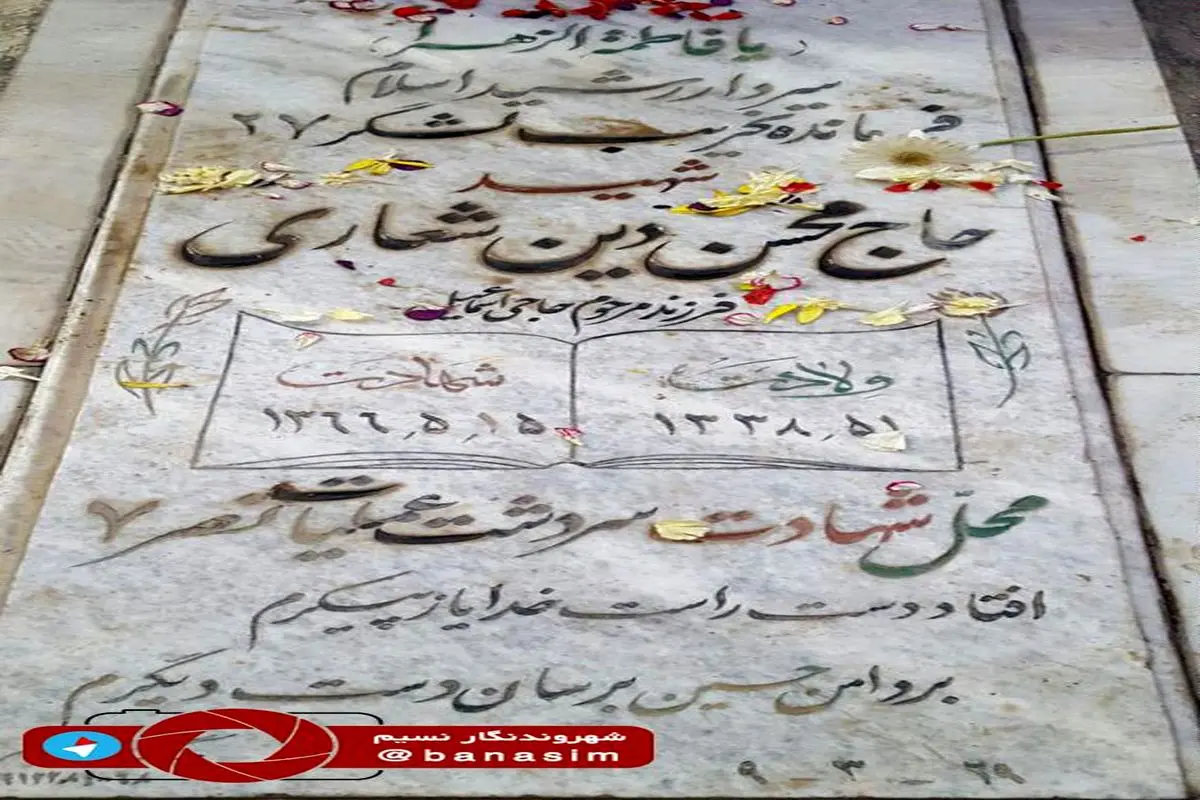 یا فاطمة الزهرا
سردار رشید اسلام
فرمانده تخریب لشکر ۲۷
شهید
حاج محسن دین شعاری
فرزند مرحوم حاجی اسماعیل
ولادت شهادت
۱۳۳۸٫۵۱ ۱۳۶۶٫۵٫۱۵
محل شهادت سردشت عملیات نصر ۷
افتاد دست راست خدایا ز پیکرم
بر دامن حسین برسان دست دیگرم
شهروندنگار نسیم
@banasim
۲۹ - ۳ - ۹